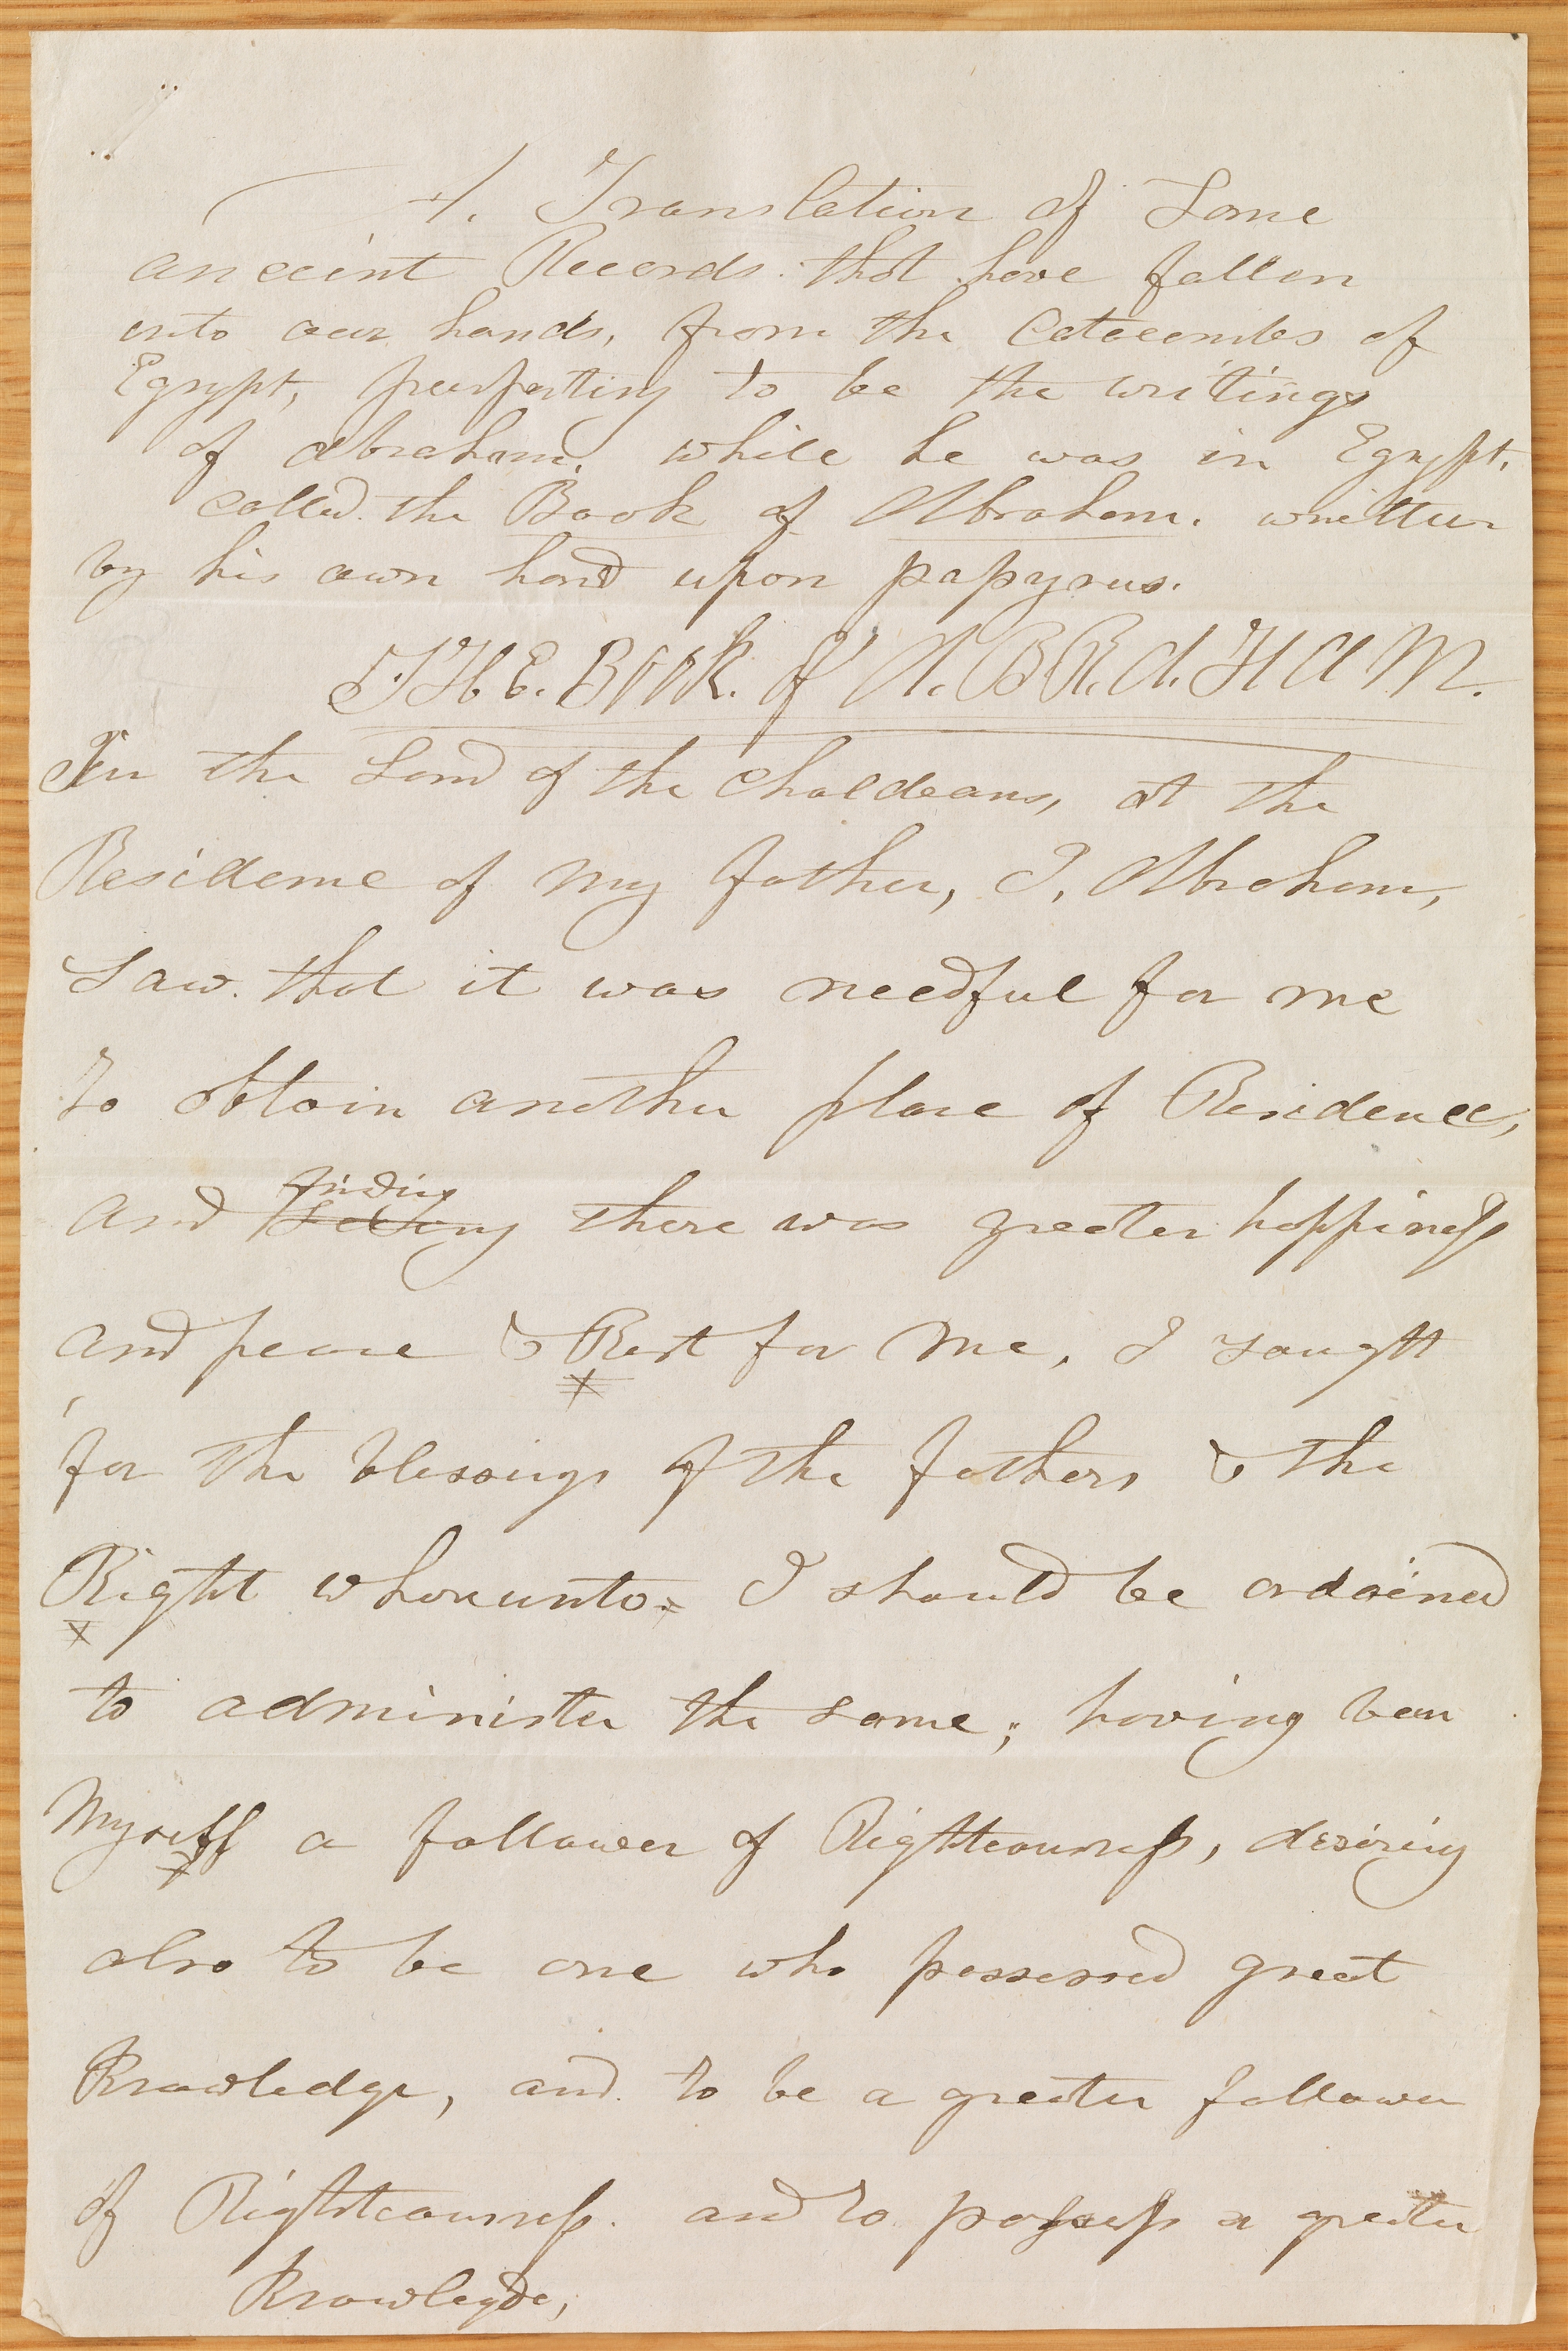 A. Translation of Some
anceint Records. that have fallen
into our hands, from the Catecombs of
Egypt, purporting to be the writings
of abraham, while he was in Egypt,
called. the Book of Abraham. writtun
by his own hand upon papyrus.
THE. Book. of A. BRAHAM.
In the Land of the Chaldeans, at the
Residence of My Father, I, Abraham,
Saw. that it was needful for me
to obtain another place of Residence,
finding
and seeing there was greater happiness
and peace & Rest for Me, I sought
for the blessings of the fathers & the
Right whereunto I should be ordained
to administer the same; having been
Myself a follower of Righteousness, desiring
also to be one who possessed great
Knowledge, and to be a greater follower
of Righteousness. and to possess a greater
Knowlegde,